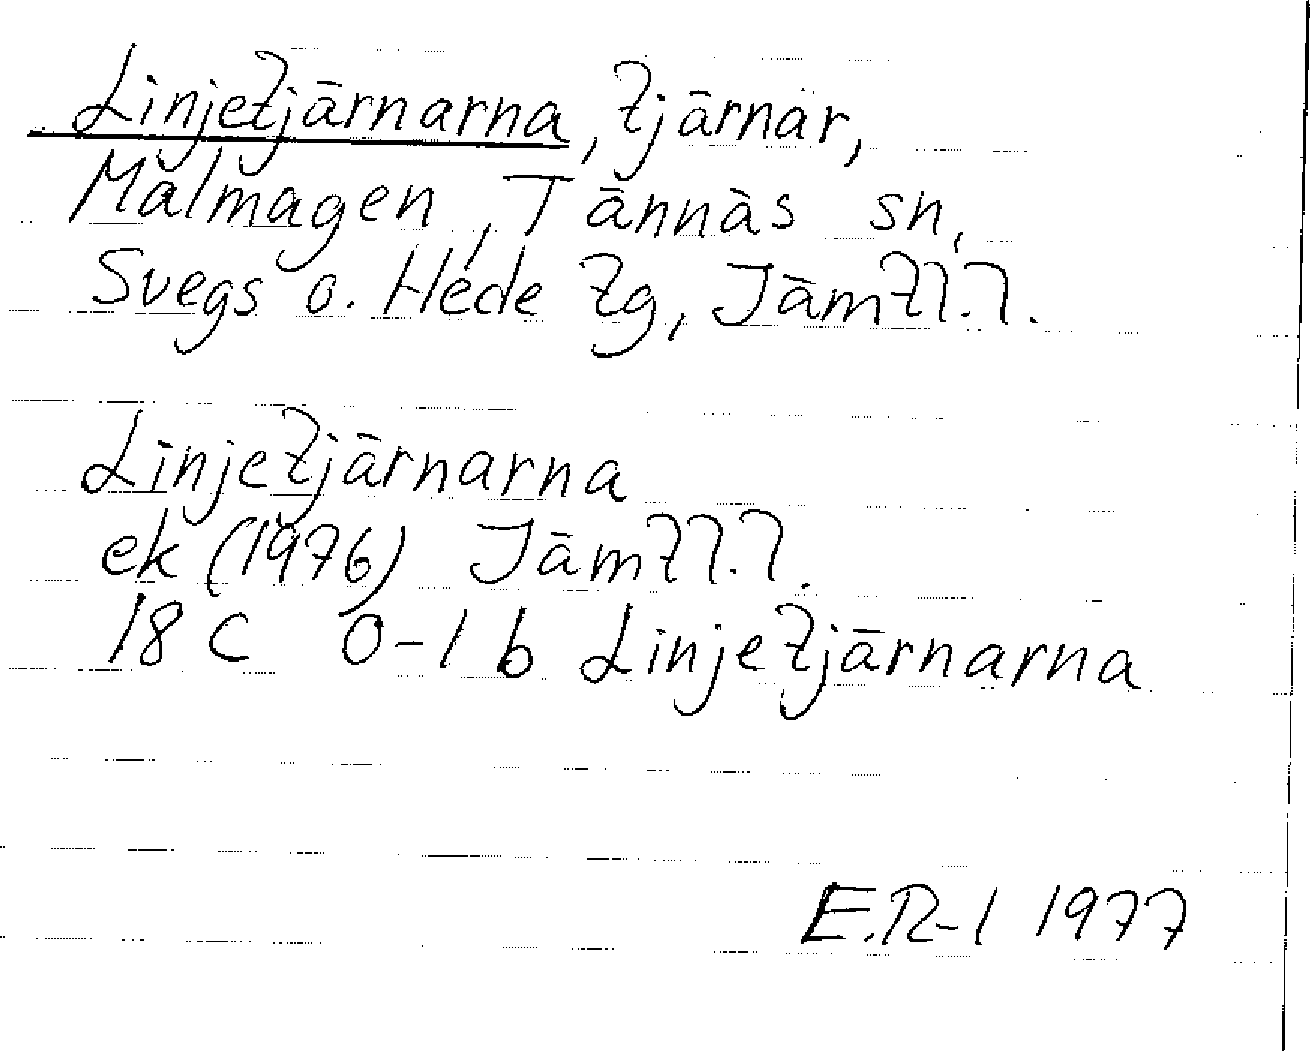 Linjetjärnarna, tjärnar,
Malmagen, Tännäs sn,
Svegs o. Hede tg, Jämtl.l.
Linjetjärnarna
ek (1976) Jämtl.l.
18 C 0-1 b Linjetjärnarna
E.R-l 1977